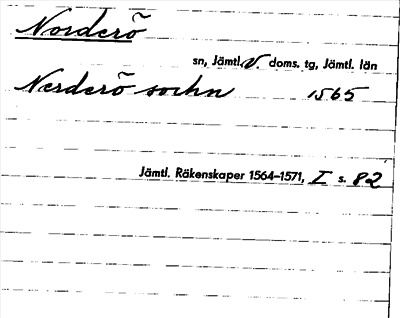 Norderö
sn, Jämtl. V. doms. tg, Jämtl. län
Nerderö sochn 1565
Jämtl. Räkenskaper 1564-1571, I s. 82